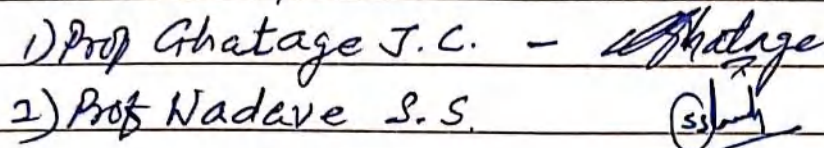 1) Prof Ghatage J. C. - Ghatage
2) Prof Nadave S. S.